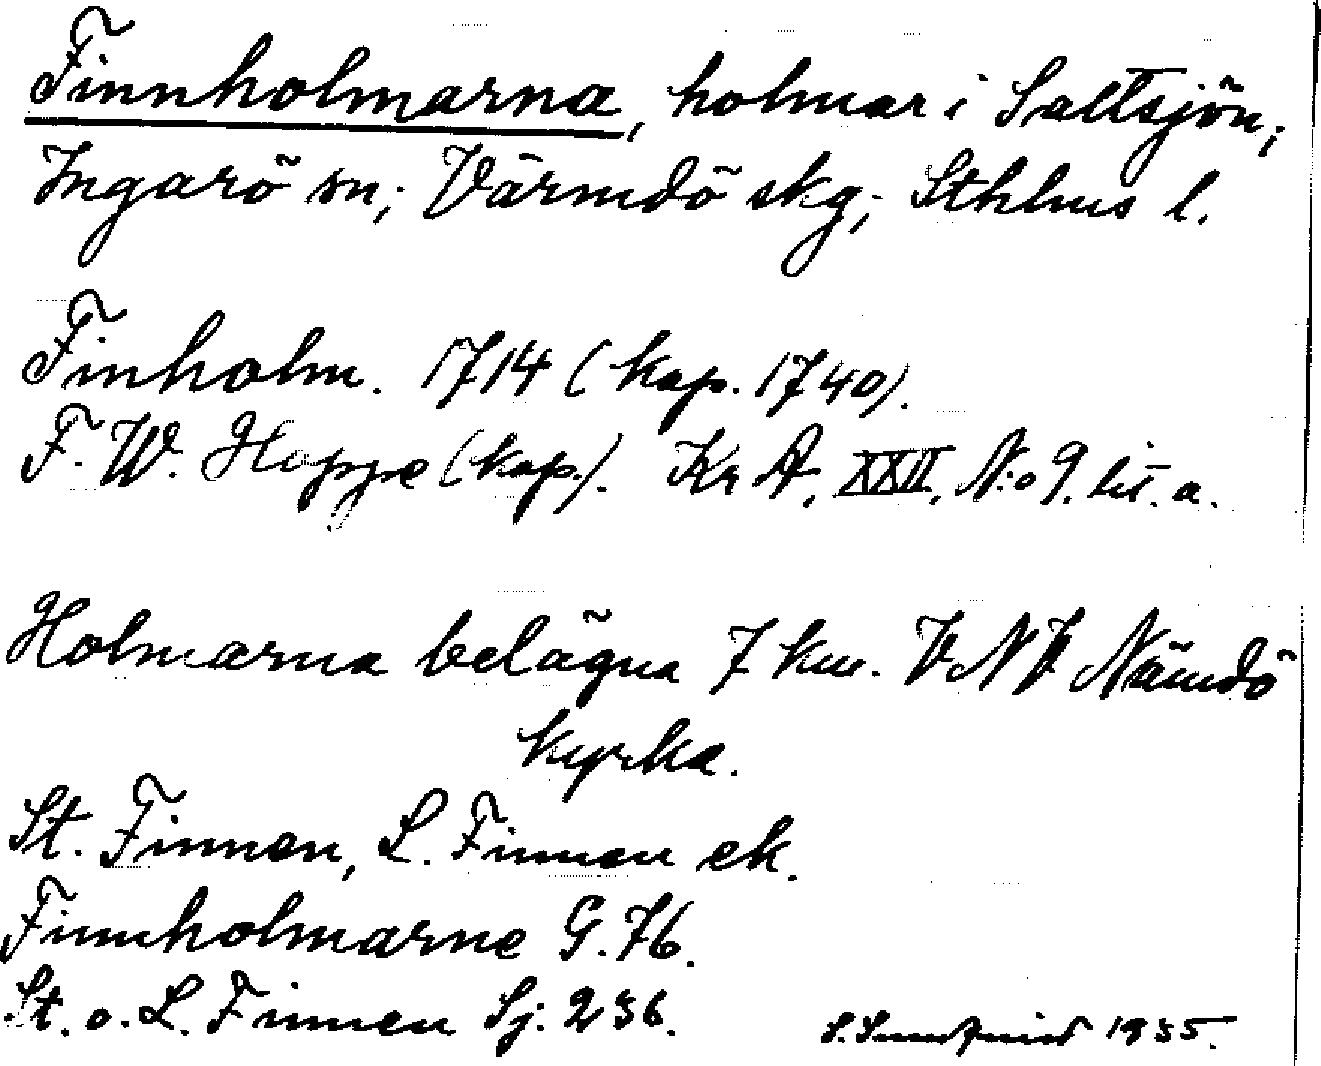 Finnholmarna, holmar i Saltsjön;
Ingarö sn; Värmdö skg; Sthlms l.
Finholm. 1714 (kop. 1740).
F. W. Hoppe (kop.). Kr A, XXII, N:o 9. lit. a.
Holmarna belägna 7 km. VNV Nämdö
kyrka.
St. Finnen, L. Finnen ek.
Finnholmarne G. 76.
St. o. L. Finnen Sj. 236.
S. 1935.